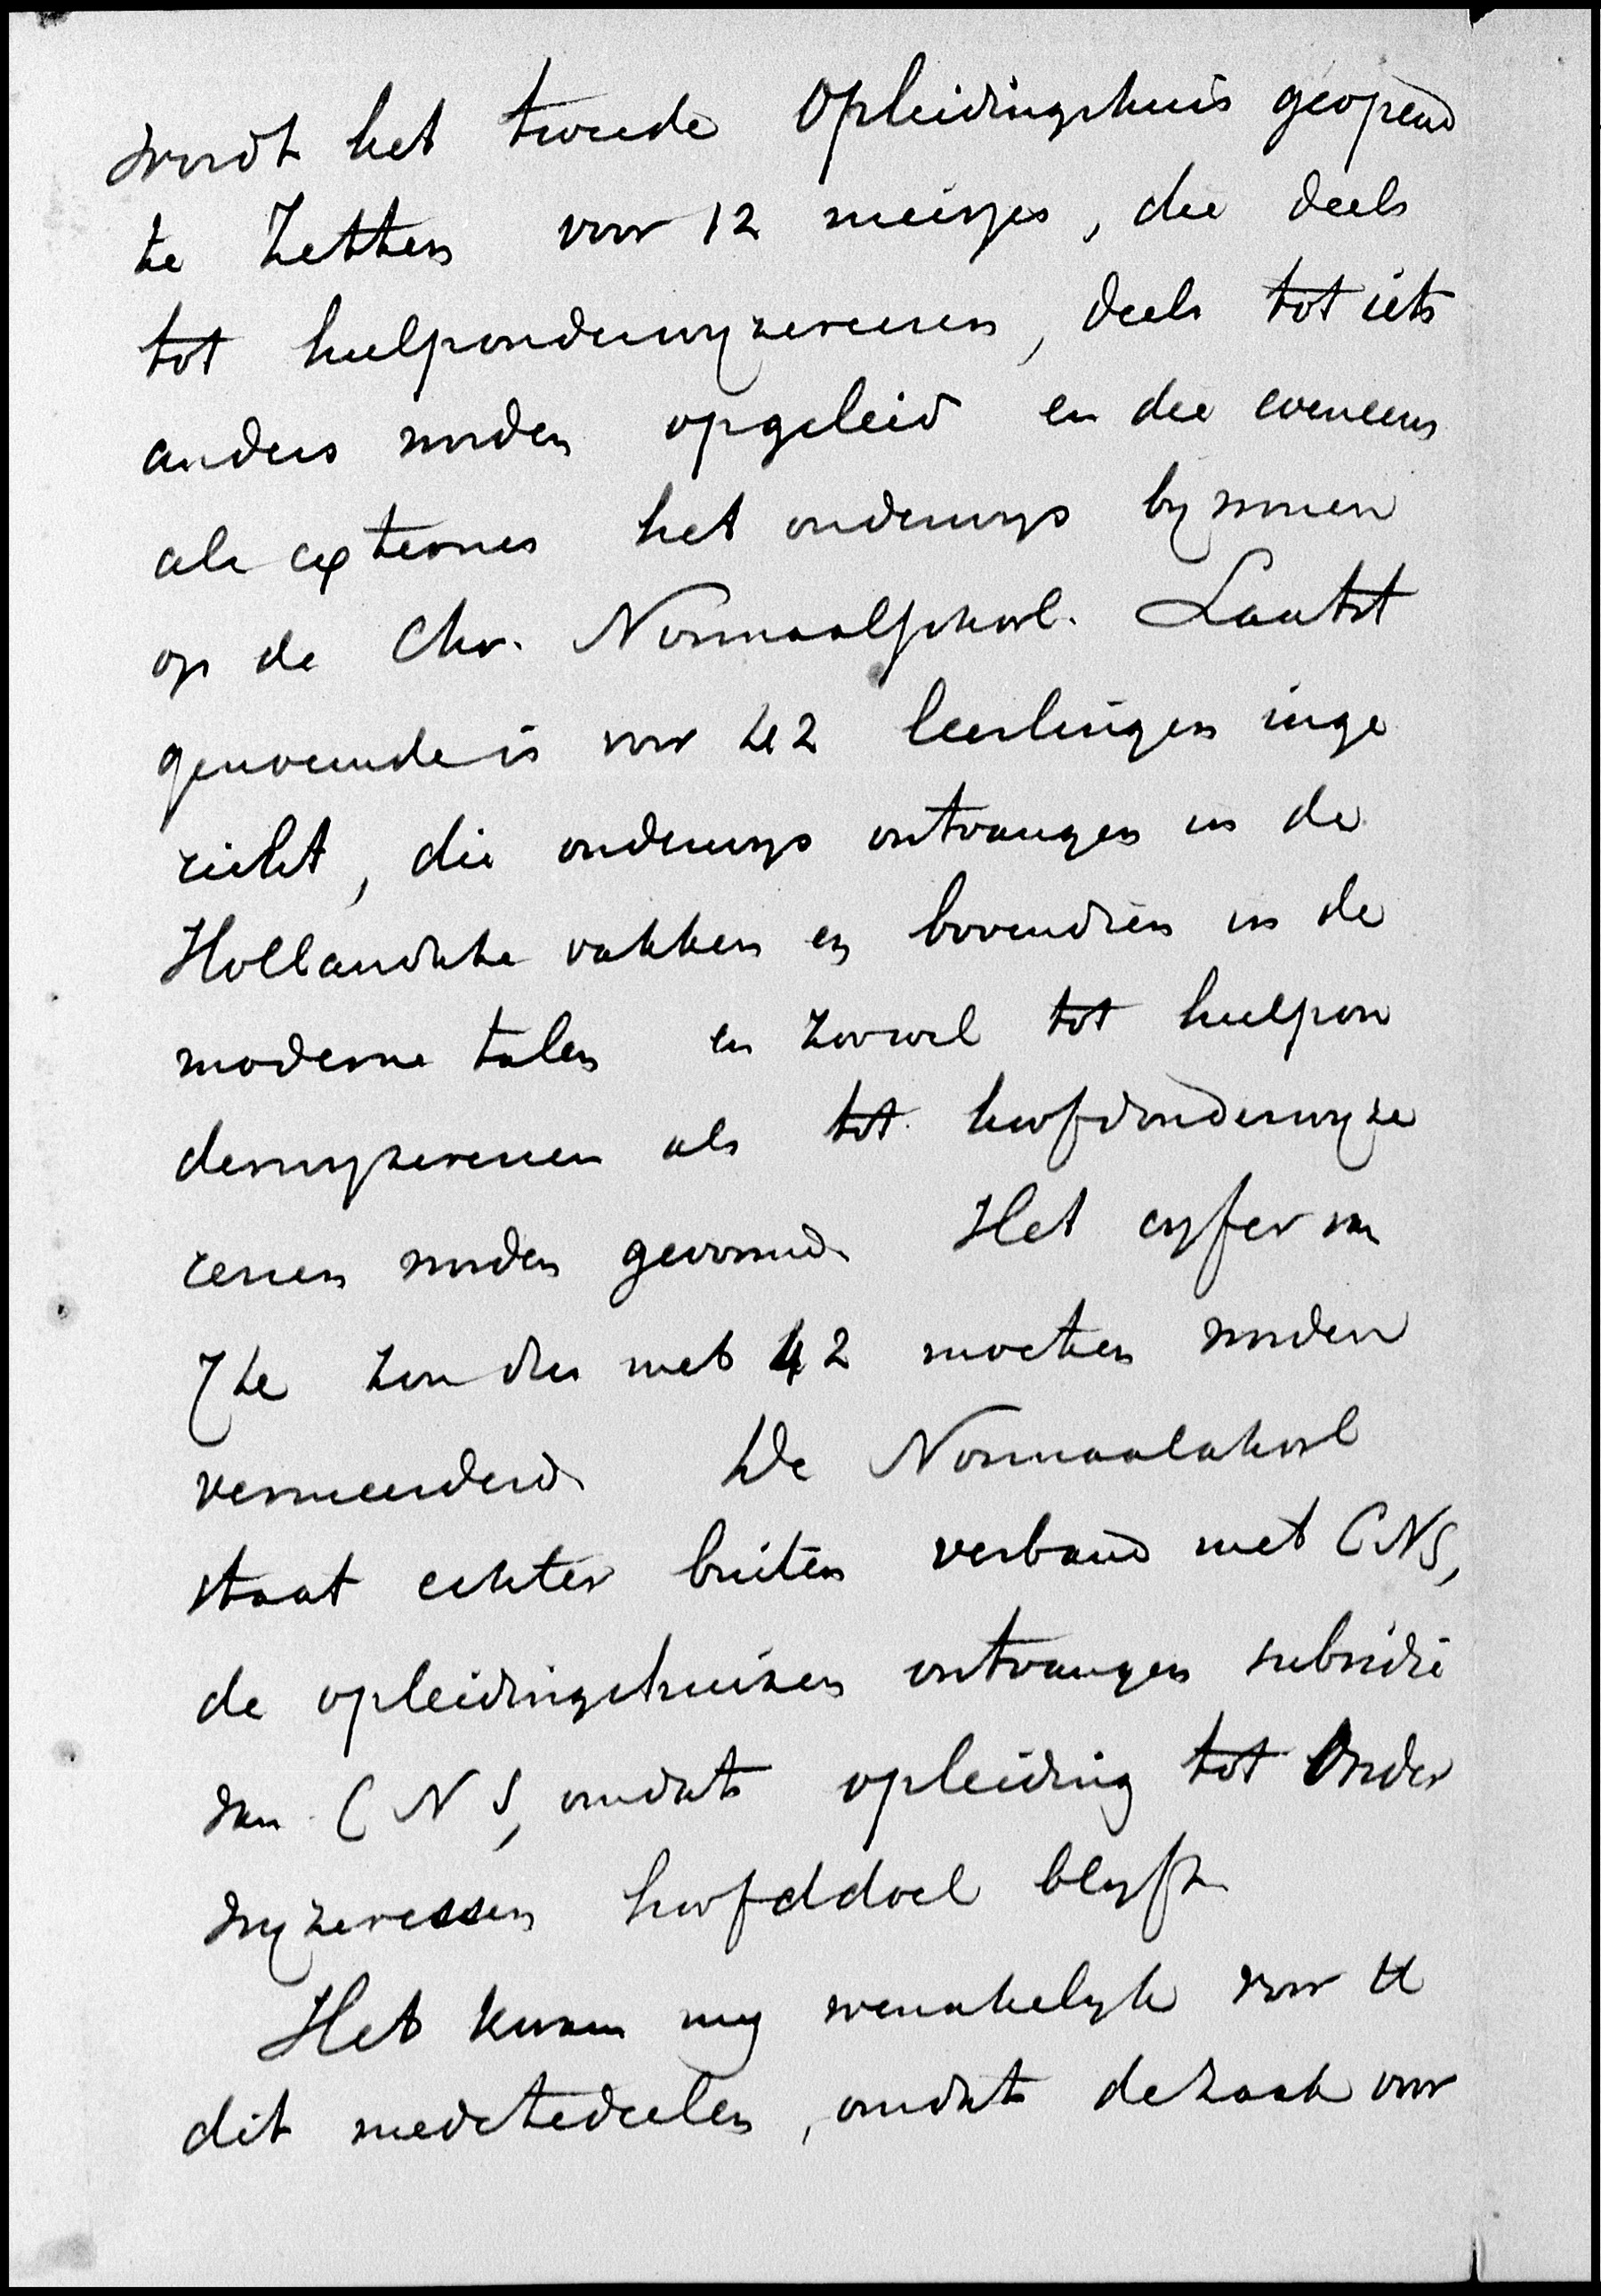 wordt het tweede Opleidingshuis geopend
te Zetten voor 12 meisjes, die deels
tot hulponderwijzeressen, deels tot iets
anders worden opgeleid en die eveneens
als externes het onderwijs bijwonen
op de Chr. Normaalschool. Laatst
genoemde is voor 42 leerlingen inge
richt, die onderwijs ontvangen in de
Hollandsche vakken en bovendien in de
moderne talen en zoowel tot hulpon
derwijzeressen als tot hoofdonderwijze
ressen worden gevormd. Het cijfer van
Zte zou dus met 42 moeten worden
vermeerderd. De Normaalschool
staat echter buiten verband met CNS,
de opleidingshuizen ontvangen subsidie
van CNS, omdat opleiding tot Onder
wijzeressen hoofddoel blijft.
Het kwam mij wenschelijk voor U
dit medetedeelen, omdat de zaak voor